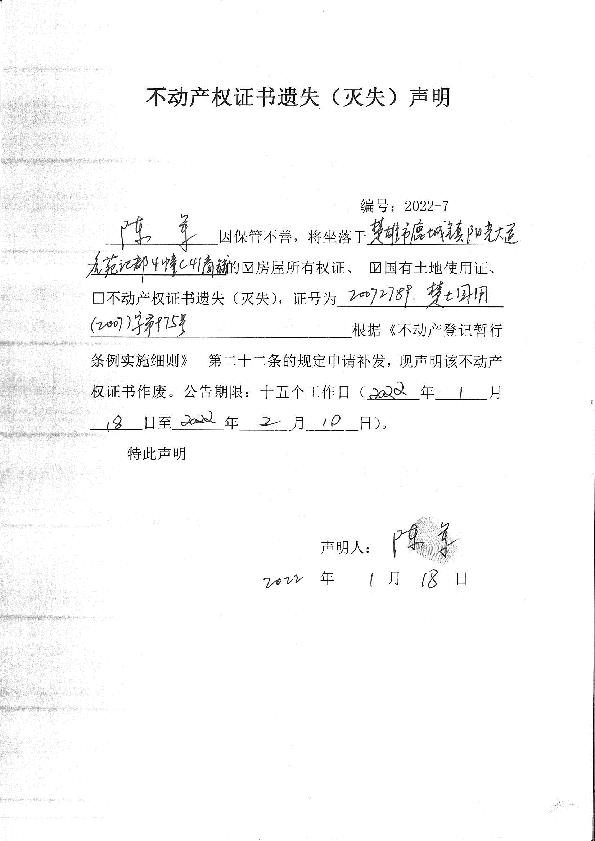 不动产权证书遗失（灭失）声明
编号：2022-7
陈军 因保管不善，将坐落于 楚雄市鹿城镇阳光大道
4幢C41商铺 的☑房屋所有权证、☑国有土地使用证、
□不动产权证书遗失（灭失），证号为 20072789. 楚土国用
(2007)字第975号 根据《不动产登记暂行
条例实施细则》 第二十二条的规定申请补发，现声明该不动产
权证书作废。公告期限：十五个工作日（2022 年 1 月
18 日至 2022 年 2 月 10 日）。
特此声明
声明人：陈军
2022 年 1 月 18 日